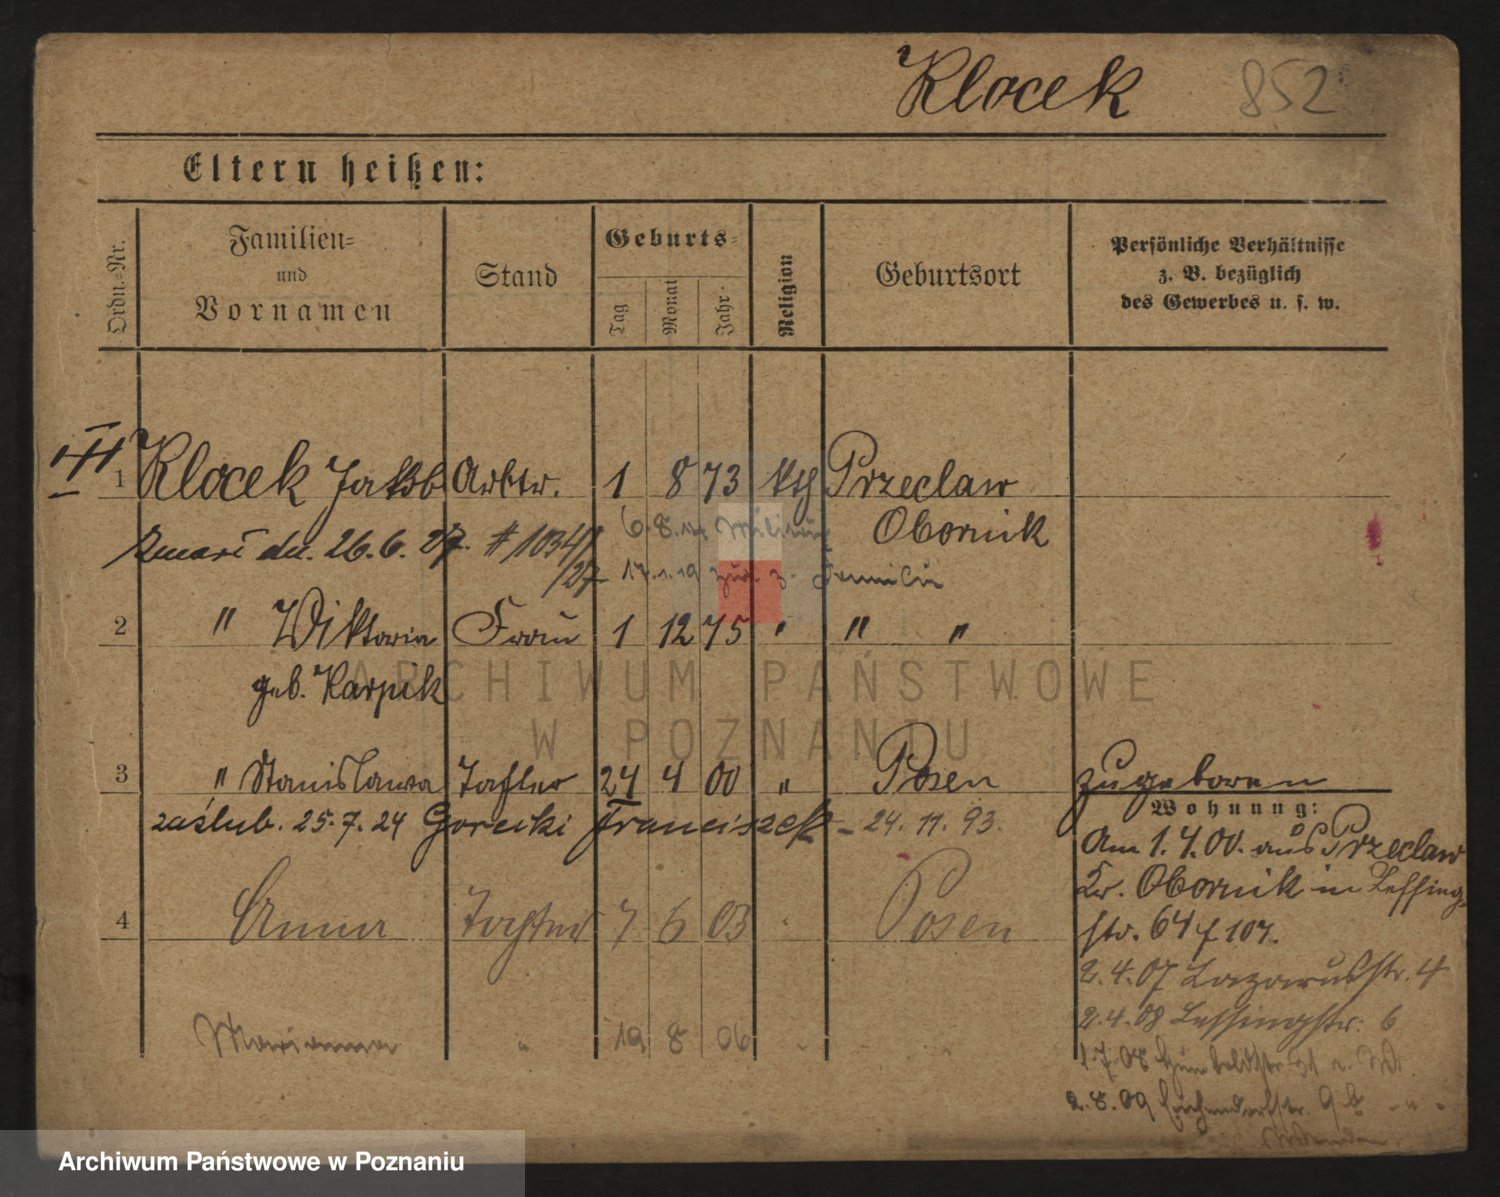 Klocek 852
Eltern heißen:
Ordn.-Nr.
Familien-
und
Vornamen
Stand
Geburts-
Tag
Monat
Jahr
Religion
Geburtsort
Persönliche Verhältnisse
z. B. bezüglich
des Gewerbes u. s. w.
1 Klocek Jakob Arbtr. 1 8 73 kth Przeclaw
Obornik
6.8. Militär
zmarł dn. 26.6.27. # 1034/
/27
17.1.19 zur. z. Familie
2 " Wiktoria Frau 1 12 75 " " "
geb. Karpik
3 " Stanislawa Tochter 24 4 00 " Posen zugeboren
Wohnung:
zaślub. 25.7.24 Gorecki Franciszek - 24.11.93.
Am 1.4.00. aus Przeclaw
Kr. Obornik in Lessing-
4 Anna Tochter 7 6 03 " Posen
str. 64 f 107.
2.4.07 Lazarusstr. 4
2.4.08 Lessingstr. 6
Marianna " 19 8 06 "
1.7.08
2.8.09 9
ARCHIWUM PAŃSTWOWE
W POZNANIU
Archiwum Państwowe w Poznaniu